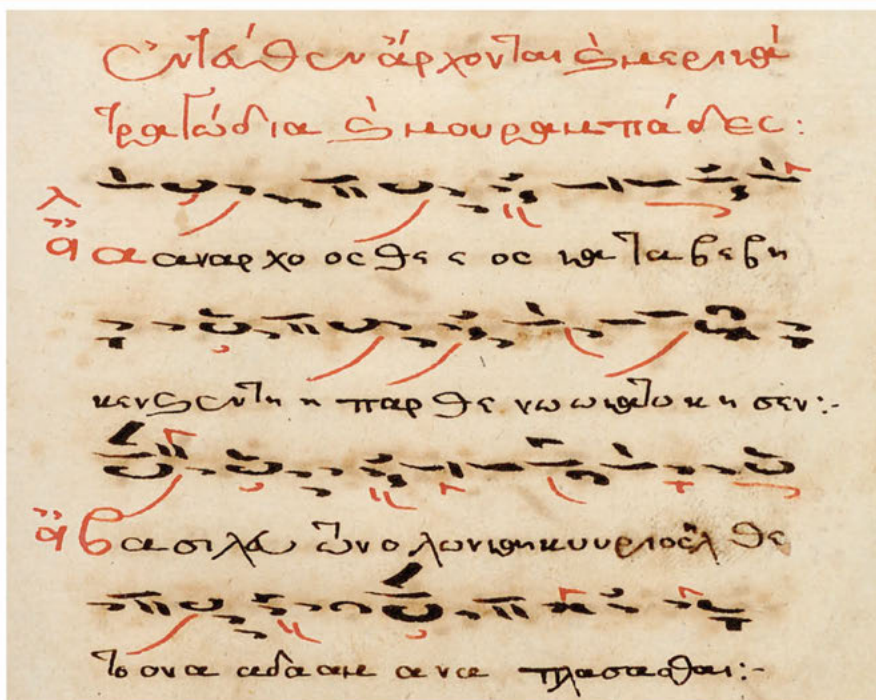 Ἐντεύθεν ἄρχονται ϗ μερικὰ
τραγώδια ϗ μουραμπάδες:
α αναρχο ος θε ε ος κα τα βε βη
κεν ϗ εν τη η παρ θε νω ω κα τω κη σεν:-
βα σι λευ των ο λων και κυ υ ριος ελ θε
το ον α αδα αμ α να πλασασθαι:-